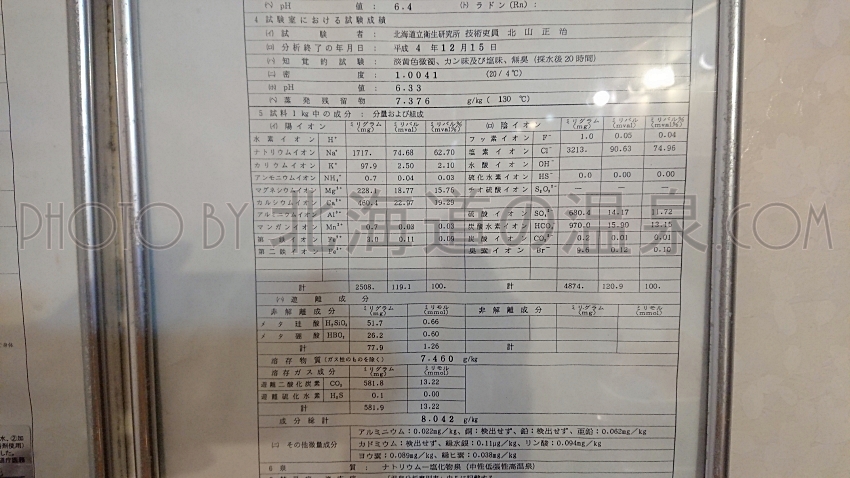 (ヘ) pH 値 : 6.4 (ト) ラドン (Rn) :
4 試験室における試験成績
(イ) 試験者 : 北海道立衛生研究所 技術吏員 北山正治
(ロ) 分析終了の年月日 : 平成 4 年 12 月 15 日
(ハ) 知覚的試験 : 淡黄色微濁、カン味及び塩味、無臭 (採水後20時間)
(ニ) 密度 : 1.0041 (20/4℃)
(ホ) pH 値 : 6.33
(ヘ) 蒸発残留物 : 7.376 g/kg ( 130 ℃)
5 試料1kg中の成分 : 分量および組成
(イ) 陽イオン ミリグラム (mg) ミリバル (mval) ミリバル% (mval%) (ロ) 陰イオン ミリグラム (mg) ミリバル (mval) ミリバル% (mval%)
水素イオン H⁺ フッ素イオン F⁻ 1.0 0.05 0.04
ナトリウムイオン Na⁺ 1717. 74.68 62.70 塩素イオン Cl⁻ 3213. 90.63 74.96
カリウムイオン K⁺ 97.9 2.50 2.10 水酸イオン OH⁻
アンモニウムイオン NH₄⁺ 0.7 0.04 0.03 硫化水素イオン HS⁻ 0.0 0.00 0.00
マグネシウムイオン Mg²⁺ 228.1 18.77 15.76 チオ硫酸イオン S₂O₃²⁻ — — —
カルシウムイオン Ca²⁺ 460.4 22.97 19.29
アルミニウムイオン Al³⁺ 硫酸イオン SO₄²⁻ 680.4 14.17 11.72
マンガンイオン Mn²⁺ 0.7 0.03 0.03 炭酸水素イオン HCO₃⁻ 970.0 15.90 13.15
第一鉄イオン Fe²⁺ 3.0 0.11 0.09 炭酸イオン CO₃²⁻ 0.2 0.01 0.01
第二鉄イオン Fe³⁺ 臭素イオン Br⁻ 9.6 0.12 0.10
計 2508. 119.1 100. 計 4874. 120.9 100.
(ハ) 遊離成分
非解離成分 ミリグラム (mg) ミリモル (mmol) 非解離成分 ミリグラム (mg) ミリモル (mmol)
メタ硅酸 H₂SiO₃ 51.7 0.66
メタ硼酸 HBO₂ 26.2 0.60
計 77.9 1.26 計
溶存物質 (ガス性のものを除く) 7.460 g/kg
溶存ガス成分 ミリグラム (mg) ミリモル (mmol)
遊離二酸化炭素 CO₂ 581.8 13.22
遊離硫化水素 H₂S 0.1 0.00
計 581.9 13.22
成分総計 8.042 g/kg
(ニ) その他微量成分
アルミニウム:0.022mg/kg、銅:検出せず、鉛:検出せず、亜鉛:0.062mg/kg
カドミウム:検出せず、総水銀:0.11μg/kg、リン酸:0.094mg/kg
ヨウ素:0.089mg/kg、総ヒ素:0.038mg/kg
6 泉質 : ナトリウム—塩化物泉 (中性低張性高温泉)
PHOTO BY 北海道の温泉.COM
水、②加